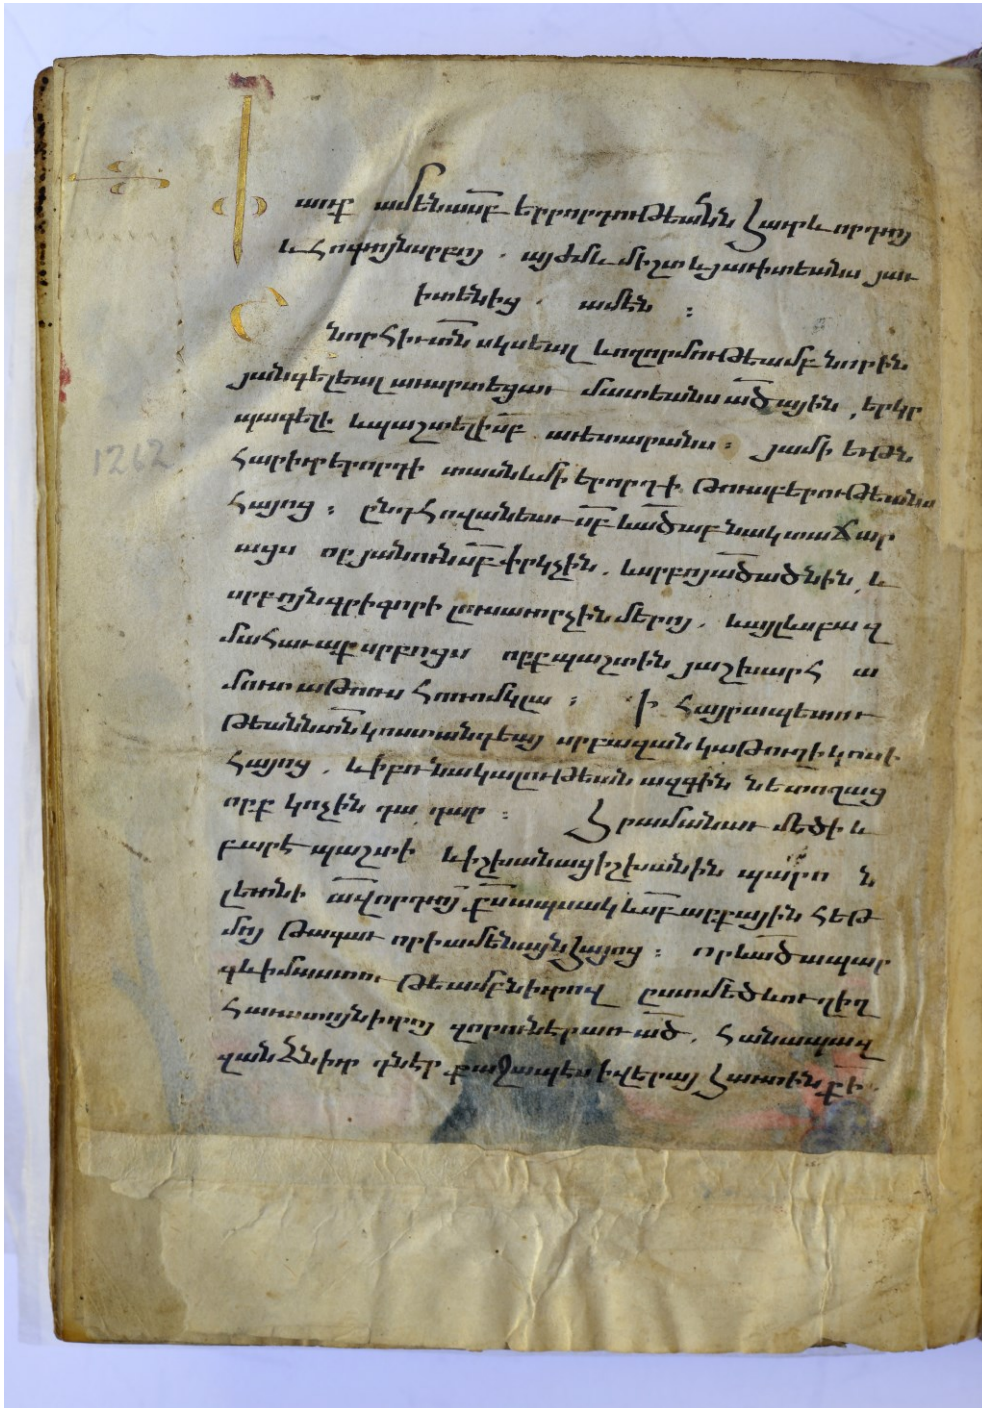 Փ
առք ամենասբ երրորդութեանն հաւր և որդոյ
և հոգւոյն սրբոյ . այժմ և միշտ և յաւիտեանս յաւ
իտենից . ամէն :
Շնորհիւ տն սկսեալ և ողորմութեամբ նորին
յանգելեալ աւարտեցաւ մատեանս ածային , երկր
պագելի և պաշտելի սբ աւետարանս : յամի եւթն
1262
հարիւրերորդի տասնևմիերորդի թուաբերութեանս
հայոց : ընդ հովանեաւ սբ և ածաբնակ տաճար
այս որ յանուն սբ փրկչին . և սրբոյ ածածնին , և
սրբոյն գրիգորի լուսաւորչին մերոյ . և այլ և աբազ
մահաւաք սրբոցս որք պաշտին յաշխարհ ա
մուր աթոռս հռոմկլա : ի հայրապետու
թեանն տն կոստանդեայ սրբազան կաթուղիկոսի
հայոց . և ի բռնակալութեան ազգին նետողաց
որք կոչին դա դար : հրամանաւ մեծի և
բարէպաշտի և իշխանաց իշխանին պարո ն
լեւոնի ավորդոյ քսապսակ և սբ արքային հեթ
մոյ թագաւորի ամենայն հայոց : որ և ածապար
գև իմաստութեամբն իւրով ըստ մեծ և ուղիղ
հաւատոյն իւրոյ զորս ներ առ ած . հանապազ
զանձն իւր դներ քաջապես ի վերայ հաւատին քի .